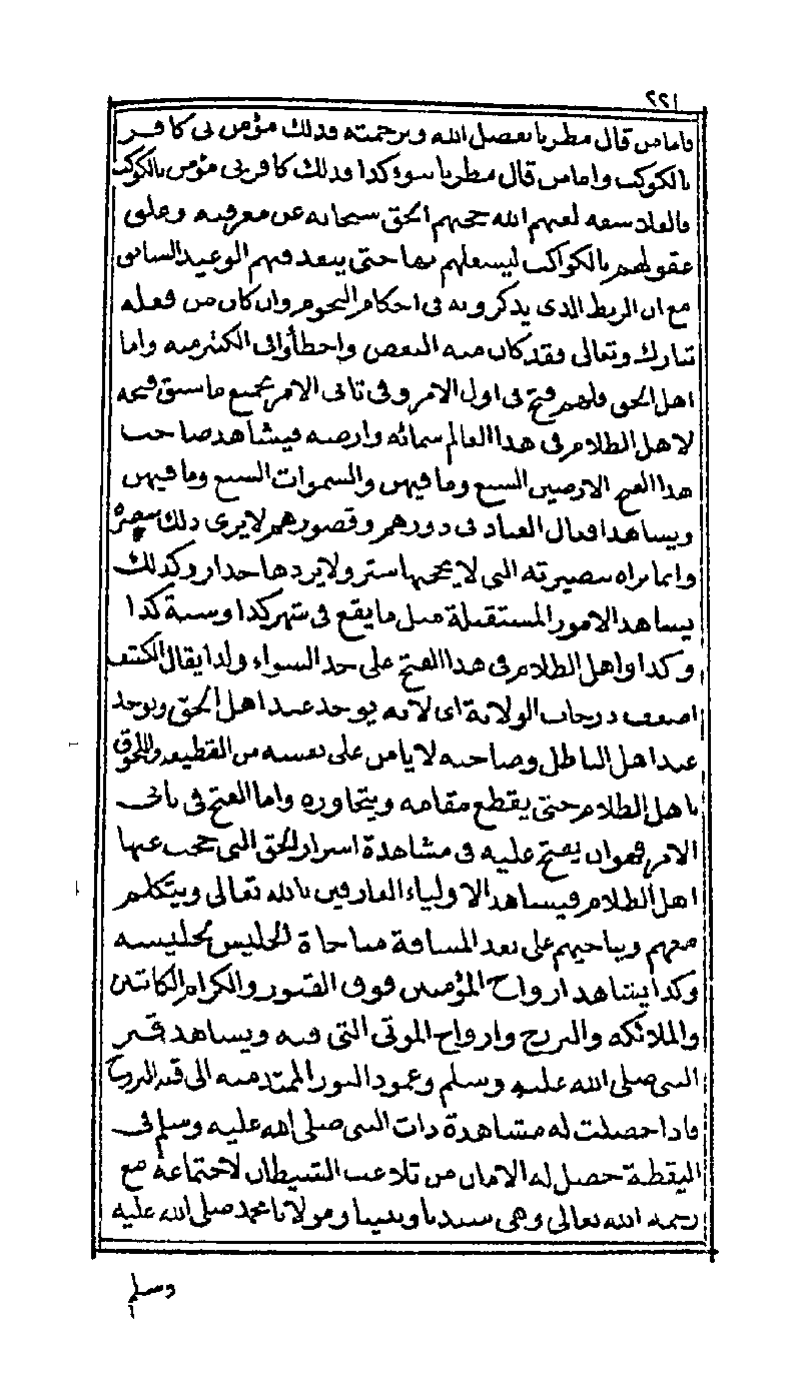 ٢٢١
فاما من قال مطرنا بفضل الله وبرحمته فذلك مؤمن بى كافر
بالكوكب واما من قال مطرنا بنوء كذا فذلك كافر بى مؤمن بالكوكب
فالفلاسفة لعنهم الله حجبهم الحق سبحانه عن معرفته وعلق
عقولهم بالكواكب ليشغلهم بها حتى ينفذ فيهم الوعيد السابق
مع ان الربط الذى يذكرونه فى احكام النجوم وان كان من فعله
تبارك وتعالى فقد كان منه البعض واخطأوا فى الكثير منه واما
اهل الحق فلهم فتح فى اول الامر وفى ثانى الامر بجميع ما سبق فتحه
لاهل الظلام فى هذا العالم سمائه وارضه فيشاهد صاحب
هذا الفتح الارضين السبع وما فيهن والسموات السبع وما فيهن
ويشاهد افعال العباد فى دورهم وقصورهم لا يرى ذلك ببصره
وانما يراه ببصيرته التى لا يحجبها ستر ولا يردها جدار وكذلك
يشاهد الامور المستقبلة مثل ما يقع فى شهر كذا وسنة كذا
وكذا واهل الظلام فى هذا الفتح على حد السواء ولذا يقال الكشف
اضعف درجات الولاية اى لانه يوجد عند اهل الحق ويوجد
عند اهل الباطل وصاحبه لا يامن على نفسه من القطيعة واللحوق
باهل الظلام حتى يقطع مقامه ويتجاوزه واما الفتح فى ثانى
الامر فهو ان يفتح عليه فى مشاهدة اسرار الحق التى حجب عنها
اهل الظلام فيشاهد الاولياء العارفين بالله تعالى ويتكلم
معهم ويناجيهم على بعد المسافة مناجاة الجليس لجليسه
وكذا يشاهد ارواح المؤمنين فوق القبور والكرام الكاتبين
والملائكة والبرزخ وارواح الموتى التى فيه ويشاهد قبر
النبى صلى الله عليه وسلم وعمود النور الممتد منه الى قبة البرزخ
فاذا حصلت له مشاهدة ذات النبى صلى الله عليه وسلم فى
اليقظة حصل له الامان من تلاعب الشيطان لاجتماعه مع
رحمة الله تعالى وهى سيدنا ونبينا ومولانا محمد صلى الله عليه
وسلم